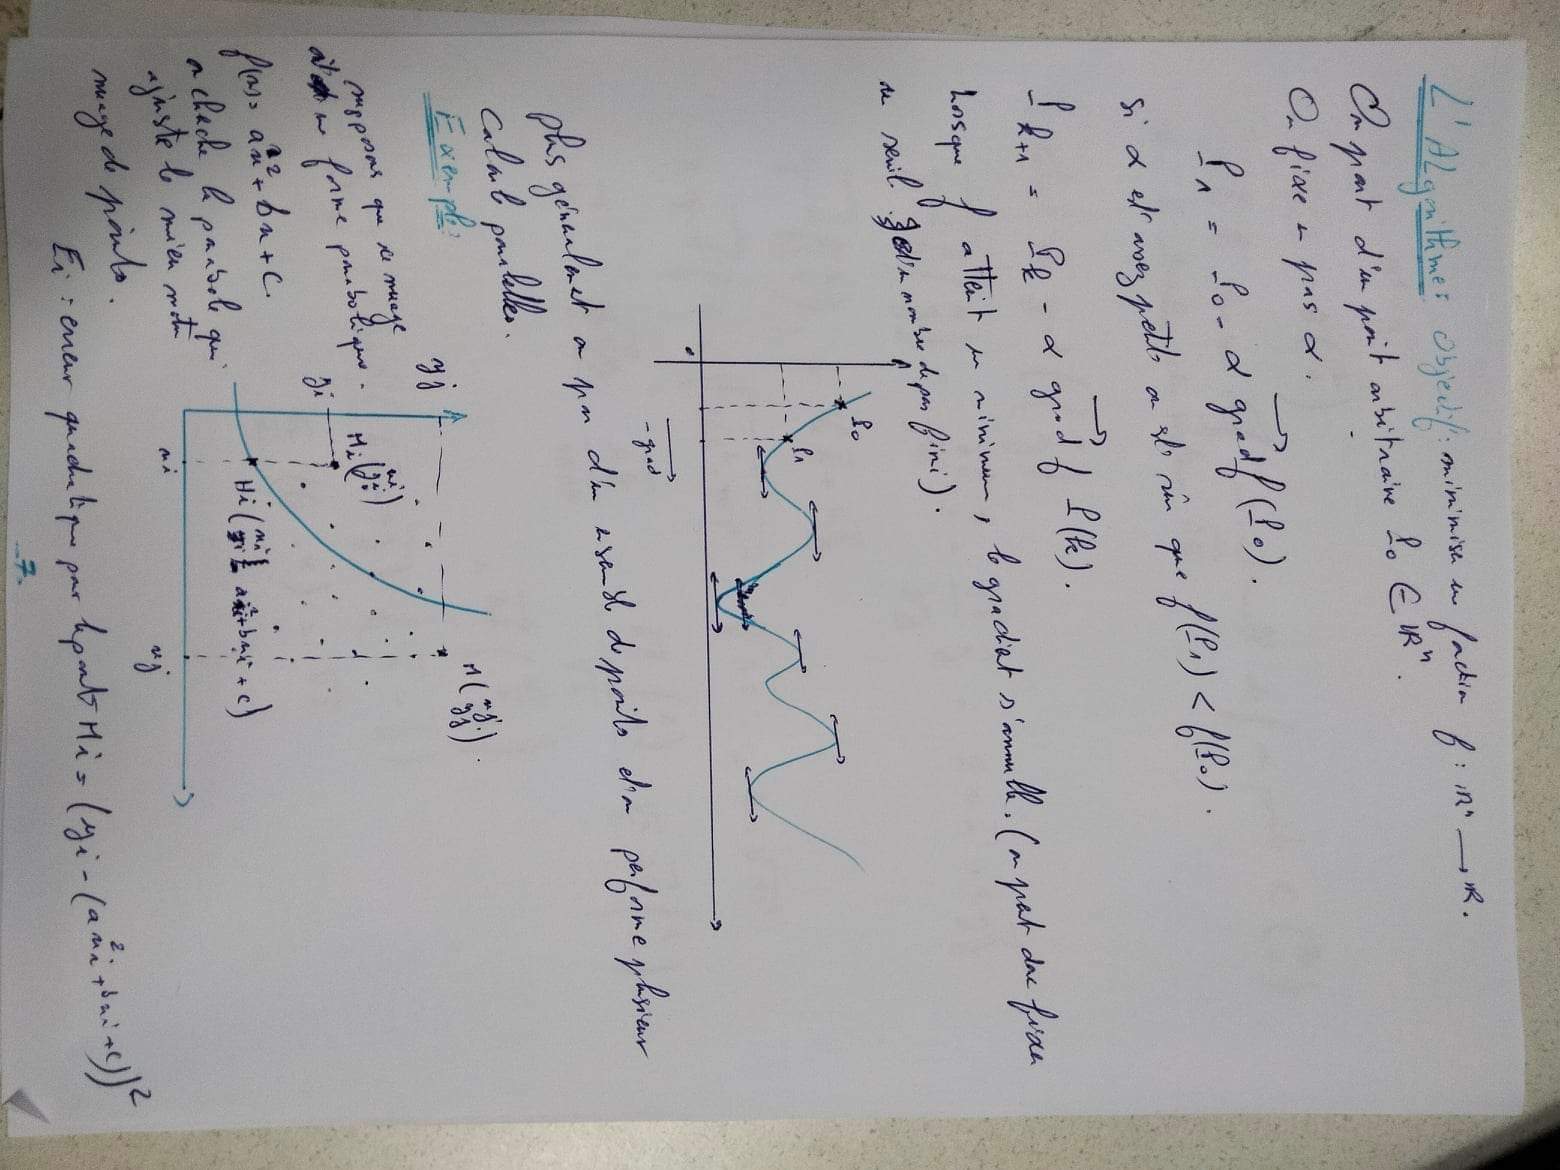 L'ALgorithme: Objectif: minimiser un fonction f : ℝⁿ → ℝ.
On part d'un point arbitraire P₀ ∈ ℝⁿ.
On fixe un pas α.
P₁ = P₀ - α grad f(P₀).
si α est assez petit on est sûr que f(P₁) < f(P₀).
P_{k+1} = P_k - α grad f P(k).
Lorsque f atteint un minimum, le gradient s'annulle. (on peut donc fixer
un seuil et un nombre de pas fini).
P₀
P₁
0
-grad
plus généralement on par d'un ensemble de points et on performe plusieur
calculs paralelles.
Exemple:
yj
M(xj yj).
supposons que ce nuage
ait une forme parabolique.
Mi(xi yi)
yi
f(x) = ax² + bx + c.
Hi(xi axi² + bxi + c)
on cherche la parabole qui
ajuste le mieu notre
nuage de points.
xi
xj
Ei : erreur quadratique par le point Mi = (yi - (axi² + bxi + c))²
7